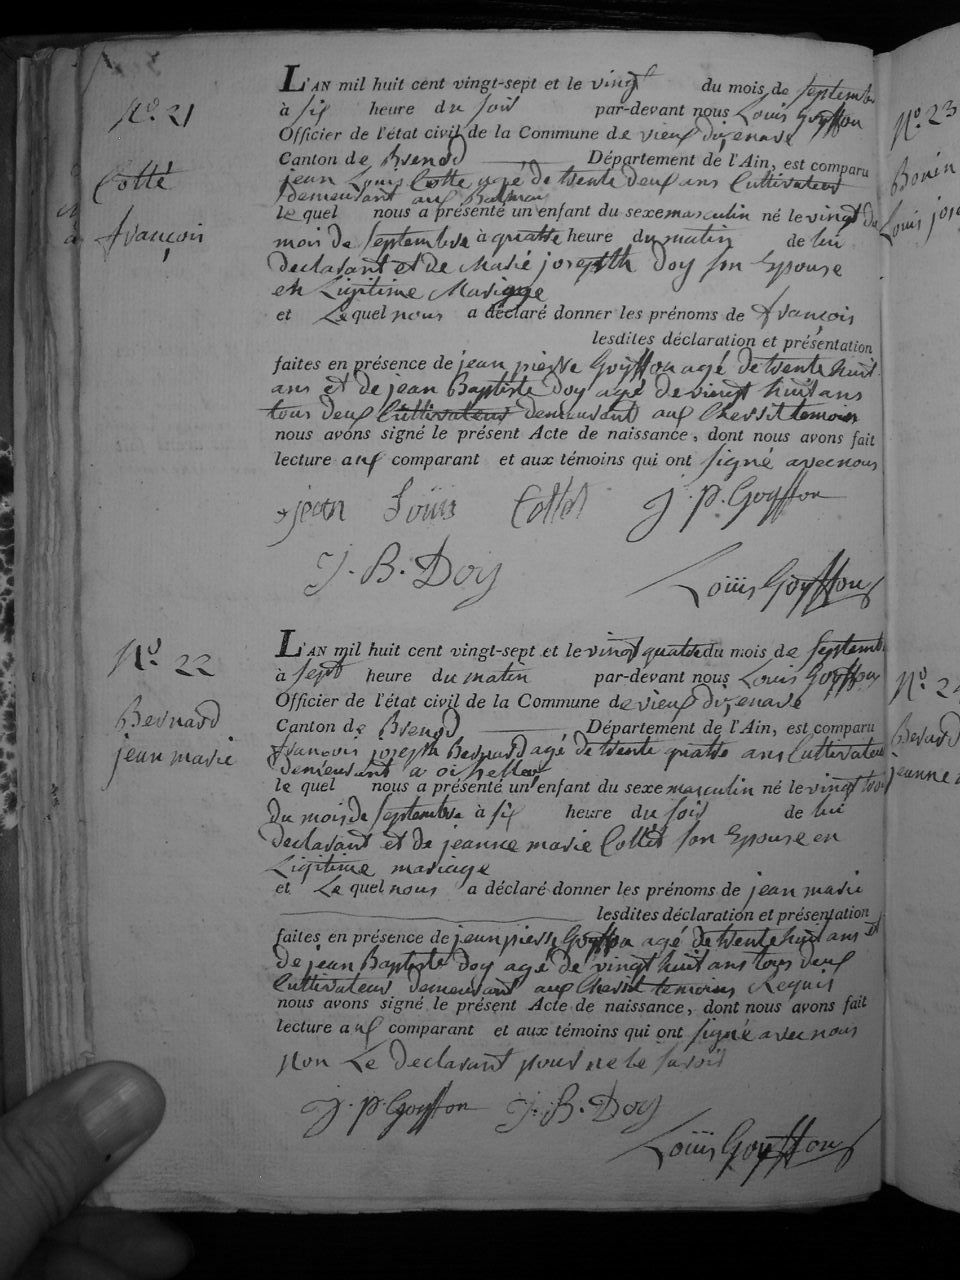 N.º 21
Cotté
françois
L'AN mil huit cent vingt-sept et le vingt du mois de septembre
à six heure du soir par-devant nous Louis Goyffon
Officier de l'état civil de la Commune de vieux dizenave
Canton de Brenod Département de l'Ain, est comparu
jean Louis Cotte agé de trente deux ans Cultivateur
demeurant aux
le quel nous a présenté un enfant du sexe masculin né le vingt du
mois de septembre à quatre heure du matin de lui
declarant et de Marie josephth Doy son Epouse
en Ligitime Mariage
et Le quel nous a déclaré donner les prénoms de françois
lesdites déclaration et présentation
faites en présence de jean pierre Goyffon agé de trente huit
ans et de jean Baptiste Doy agé de vingt huit ans
tous deux Cultivateur demeurant aux Chevril temoin
nous avons signé le présent Acte de naissance, dont nous avons fait
lecture aux comparant et aux témoins qui ont signé avec nous
jean Louis Cottet J. P. Goyffon
J. B. Doy Louis Goyffon
N.º 22
Bernard
jean marie
L'AN mil huit cent vingt-sept et le vingt quatre du mois de Septembr
à sept heure du matin par-devant nous Louis Goyffon
Officier de l'état civil de la Commune de vieux dizenave
Canton de Brenod Département de l'Ain, est comparu
françois joseph Bernard agé de trente quatre ans Cultivateur
demeurant a
le quel nous a présenté un enfant du sexe masculin né le vingt trois
du mois de Septembre à six heure du soir de lui
declarant et de jeanne marie Collet son Epouse en
Ligitime mariage
et Le quel nous a déclaré donner les prénoms de jean marie
lesdites déclaration et présentation
faites en présence de jean pierre Goyffon agé de trente huit ans et
de jean Baptiste Doy agé de vingt huit ans tous deux
Cultivateur demeurant aux Chevril temoins Requis
nous avons signé le présent Acte de naissance, dont nous avons fait
lecture aux comparant et aux témoins qui ont signé avec nous
non Le declarant pour ne le savoir
J. P. Goyffon J. B. Doy
Louis Goyffon
N.º 23
Bonin
Louis jos
N.º 24
Berard
jeanne